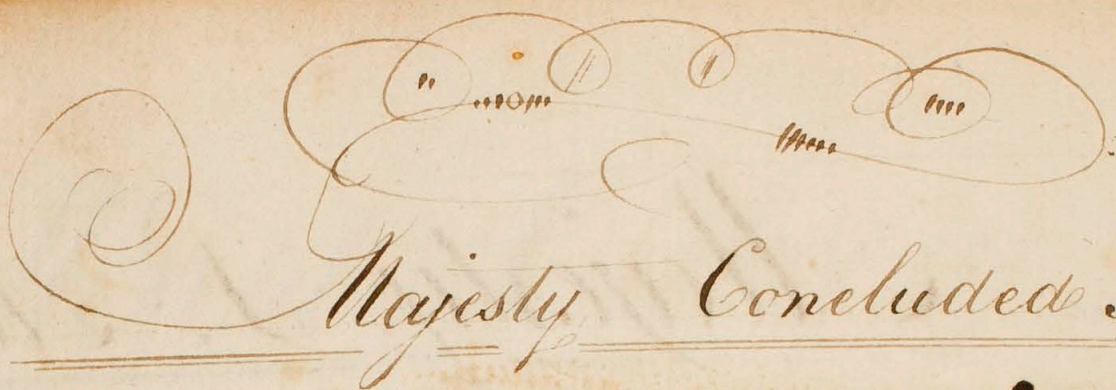 Majesty Concluded.